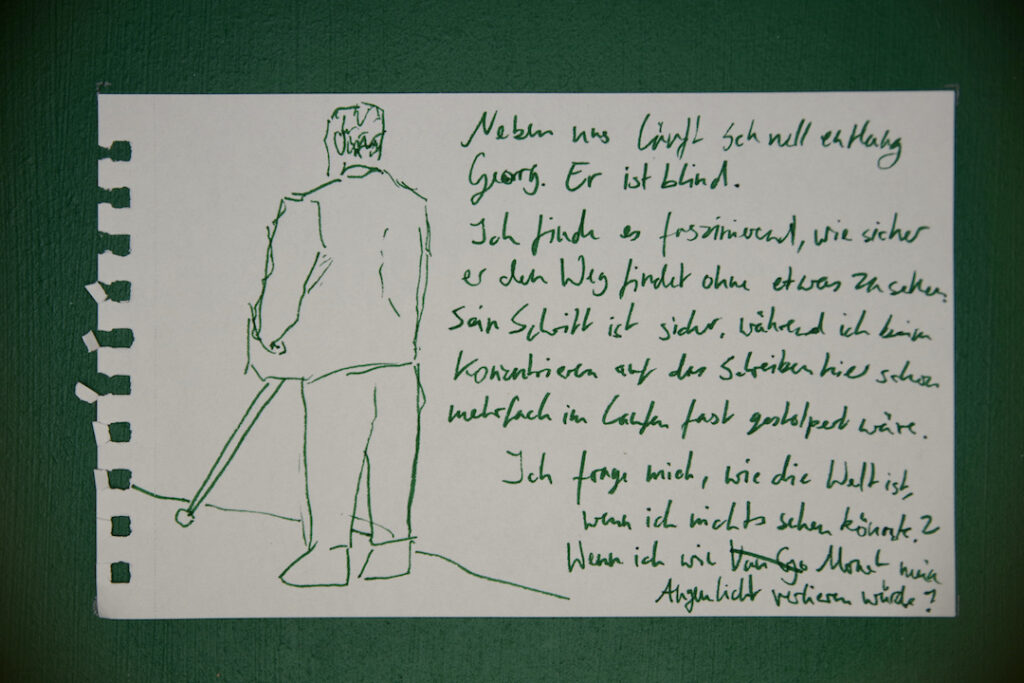 Neben uns läuft schnell entlang
Georg. Er ist blind.
Ich finde es faszinierend, wie sicher
er den Weg findet ohne etwas zu sehen.
Sein Schritt ist sicher, während ich beim
Konzentrieren auf das Schreiben hier schon
mehrfach im Laufen fast gestolpert wäre.
Ich frage mich, wie die Welt ist,
wenn ich nichts sehen könnte?
Wenn ich wie Van Go Monet mein
Augenlicht verlieren würde?